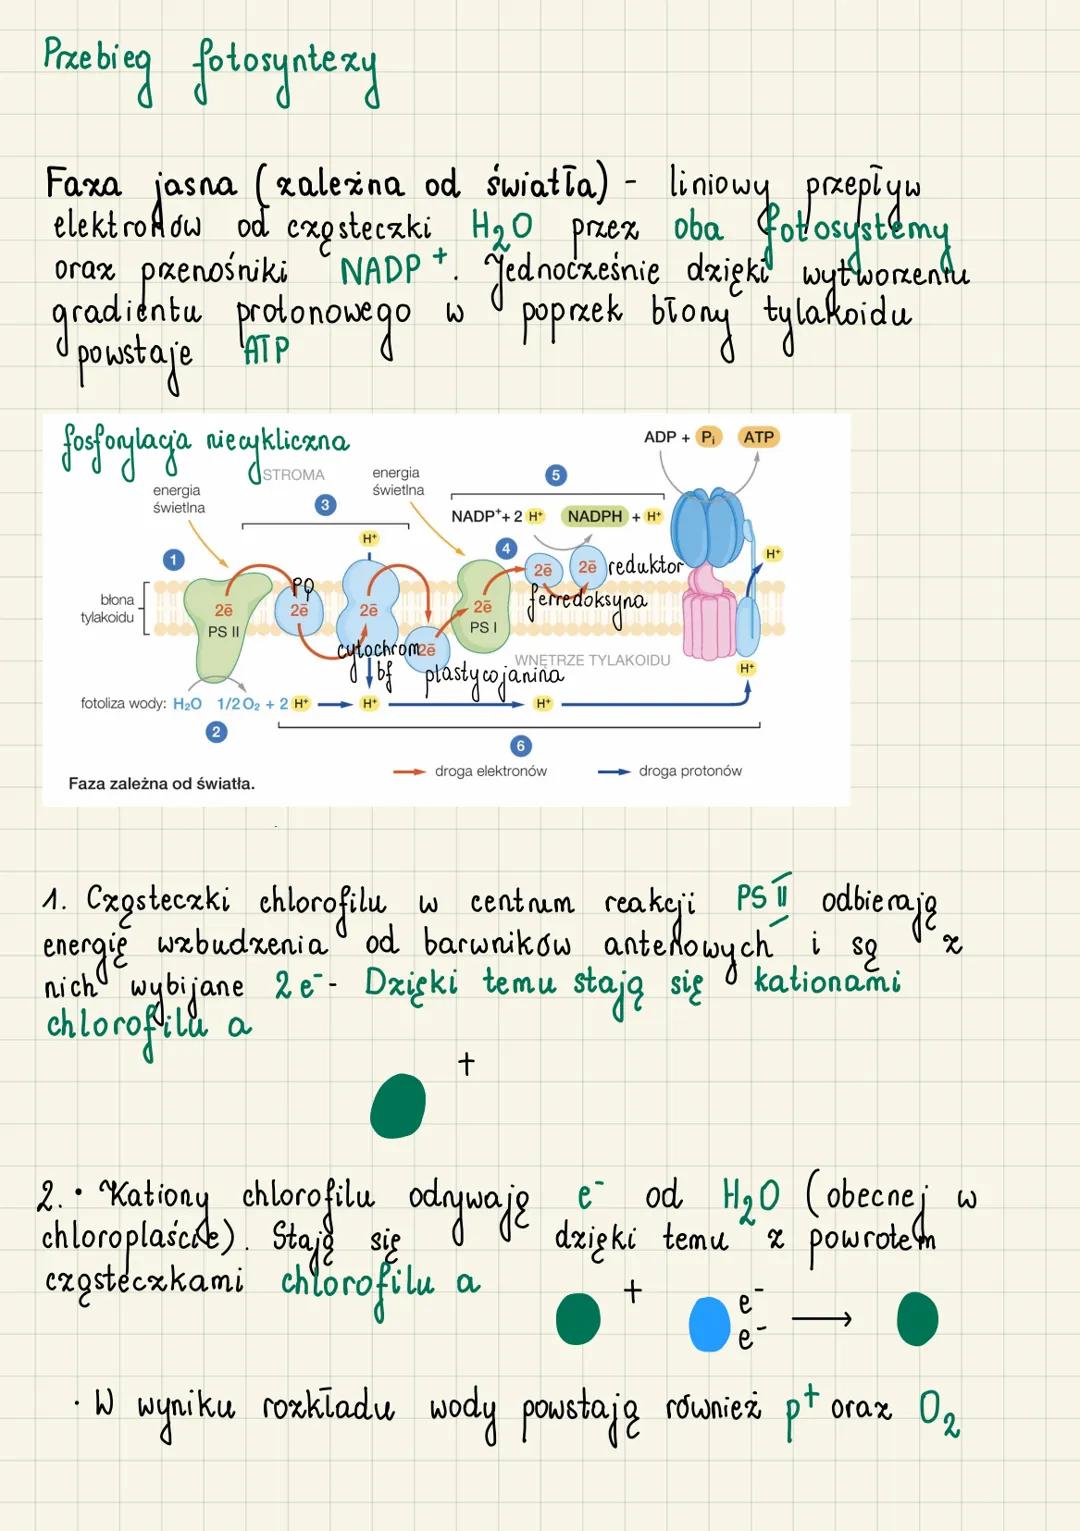 Przebieg fotosyntezy
Faza jasna (zależna od światła) - liniowy przepływ
elektronów od cząsteczki H₂O przez oba fotosystemy
oraz przenośniki NADP⁺. Jednocześnie dzięki wytworzeniu
gradientu protonowego w poprzek błony tylakoidu
powstaje ATP
fosforylacja niecykliczna
ADP + Pᵢ ATP
STROMA
energia
świetlna
energia
świetlna
5
3
NADP⁺ + 2 H⁺ NADPH + H⁺
H⁺
1
4
H⁺
błona
tylakoidu
2ē
PS II
PQ
2ē
2ē
2ē
PS I
2ē
2ē
reduktor
ferredoksyna
cytochrom
bf
2ē
plastycojanina
WNĘTRZE TYLAKOIDU
H⁺
fotoliza wody: H₂O 1/2 O₂ + 2 H⁺
H⁺
H⁺
2
6
droga elektronów
droga protonów
Faza zależna od światła.
1. Cząsteczki chlorofilu w centrum reakcji PS II odbierają
energię wzbudzenia od barwników antenowych i są z
nich wybijane 2 e⁻ - Dzięki temu stają się kationami
chlorofilu a
+
2. • Kationy chlorofilu odrywają e⁻ od H₂O (obecnej w
chloroplaście). Stają się dzięki temu z powrotem
cząsteczkami chlorofilu a
+
e⁻
e⁻
• W wyniku rozkładu wody powstają również p⁺ oraz O₂